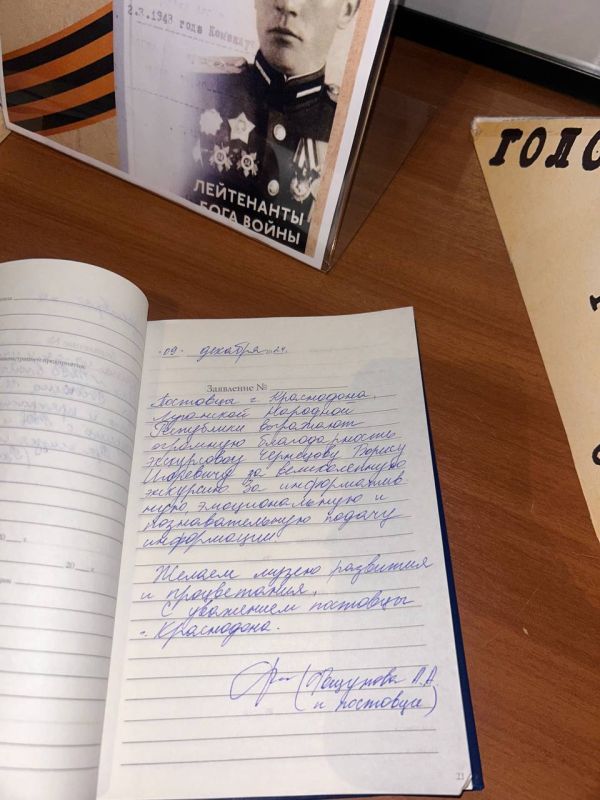 2.3.1943 года Команду
ЛЕЙТЕНАНТЫ
БОГА ВОЙНЫ
ГОЛО
09 декабря 24.
Заявление №
Постовцы г. Краснодона,
Луганской Народной
Республики выражают
огромную благодарность
экскурсоводу Борису
Игоревичу за великолепную
экскурсию. За информатив
ную эмоциональную и
познавательную подачу
информации
Желаем музею развития
и процветания.
С уважением постовцы
г. Краснодона.
А.А.
и постовцы)
21